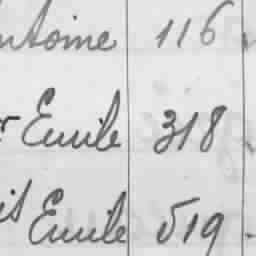 ntoine 116
r Emile 318
is Emile 519